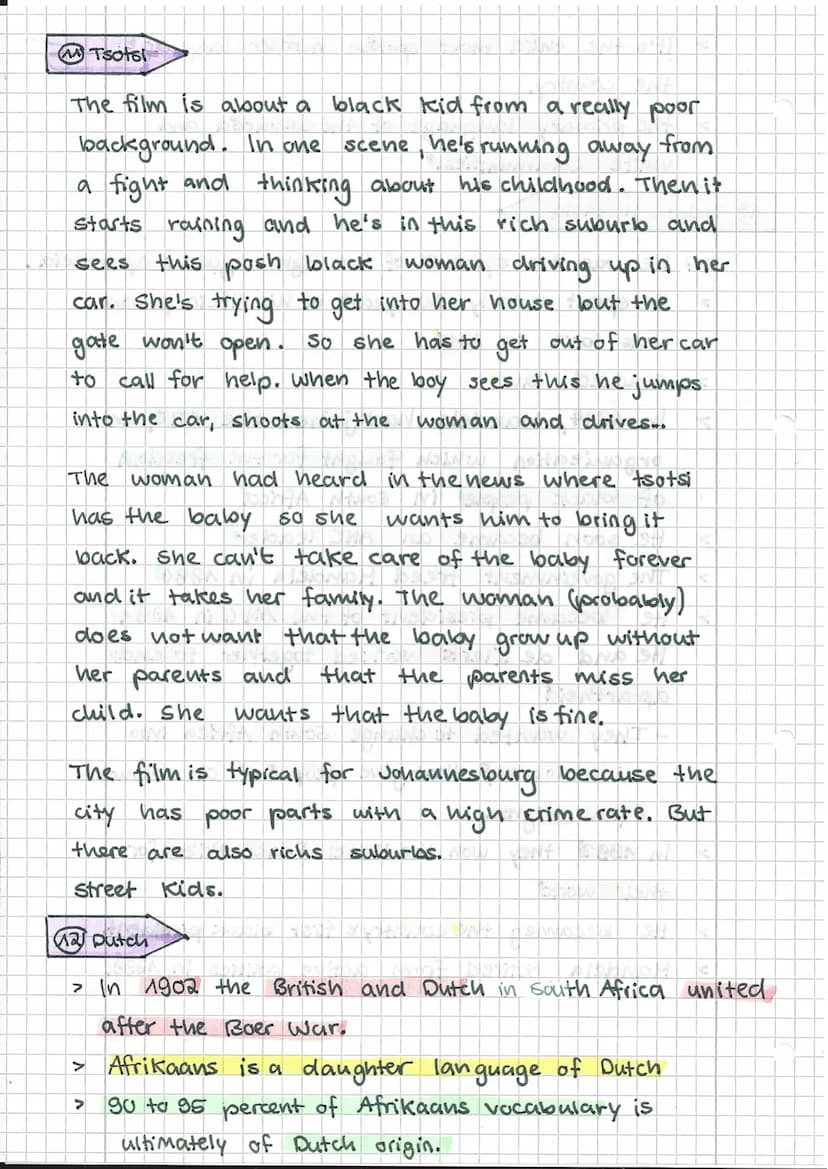 11 Tsotsi
The film is about a black kid from a really poor
background. In one scene, he's running away from
a fight and thinking about his childhood. Then it
starts raining and he's in this rich suburb and
sees this posh black woman driving up in her
car. She's trying to get into her house but the
gate won't open. So she has to get out of her car
to call for help. When the boy sees this he jumps
into the car, shoots at the woman and drives...
The woman had heard in the news where tsotsi
has the baby so she wants him to bring it
back. She can't take care of the baby forever
and it takes her family. The woman (probably)
does not want that the baby grow up without
her parents and that the parents miss her
child. She wants that the baby is fine.
The film is typical for Johannesburg because the
city has poor parts with a high crime rate. But
there are also richs suburbs.
Street Kids.
12 Dutch
> In 1902 the British and Dutch in South Africa united
after the Boer War.
> Afrikaans is a daughter language of Dutch
> 90 to 95 percent of Afrikaans vocabulary is
ultimately of Dutch origin.